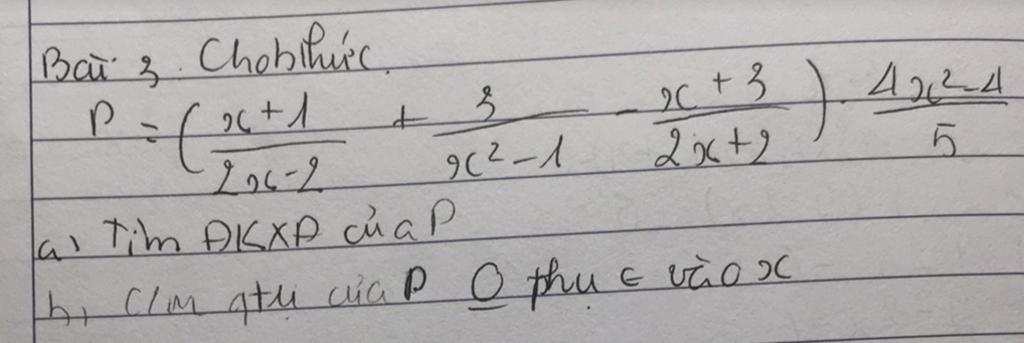 Bài 3. Cho bthức
P = ( \frac{x+1}{2x-2} + \frac{3}{x^2-1} - \frac{x+3}{2x+2} ) . \frac{4x^2-4}{5}
a, Tìm ĐKXĐ của P
b, C/m gtrị của P O phụ ∈ vào x